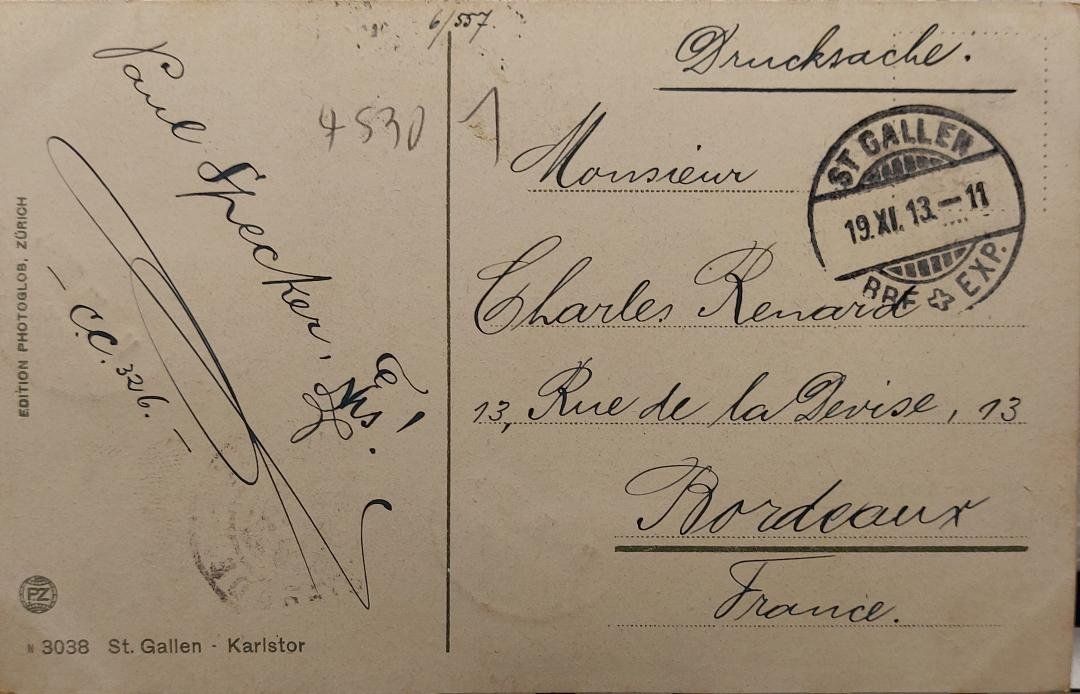 6/557.
Drucksache.
4530
1
Paul Specker.
- C.C. 3216. -
Monsieur
Charles Renard
13, Rue de la Devise, 13
Bordeaux
France.
ST GALLEN
19.XI.13.-11
BRF EXP.
EDITION PHOTOGLOB, ZÜRICH
PZ
N 3038 St. Gallen - Karlstor